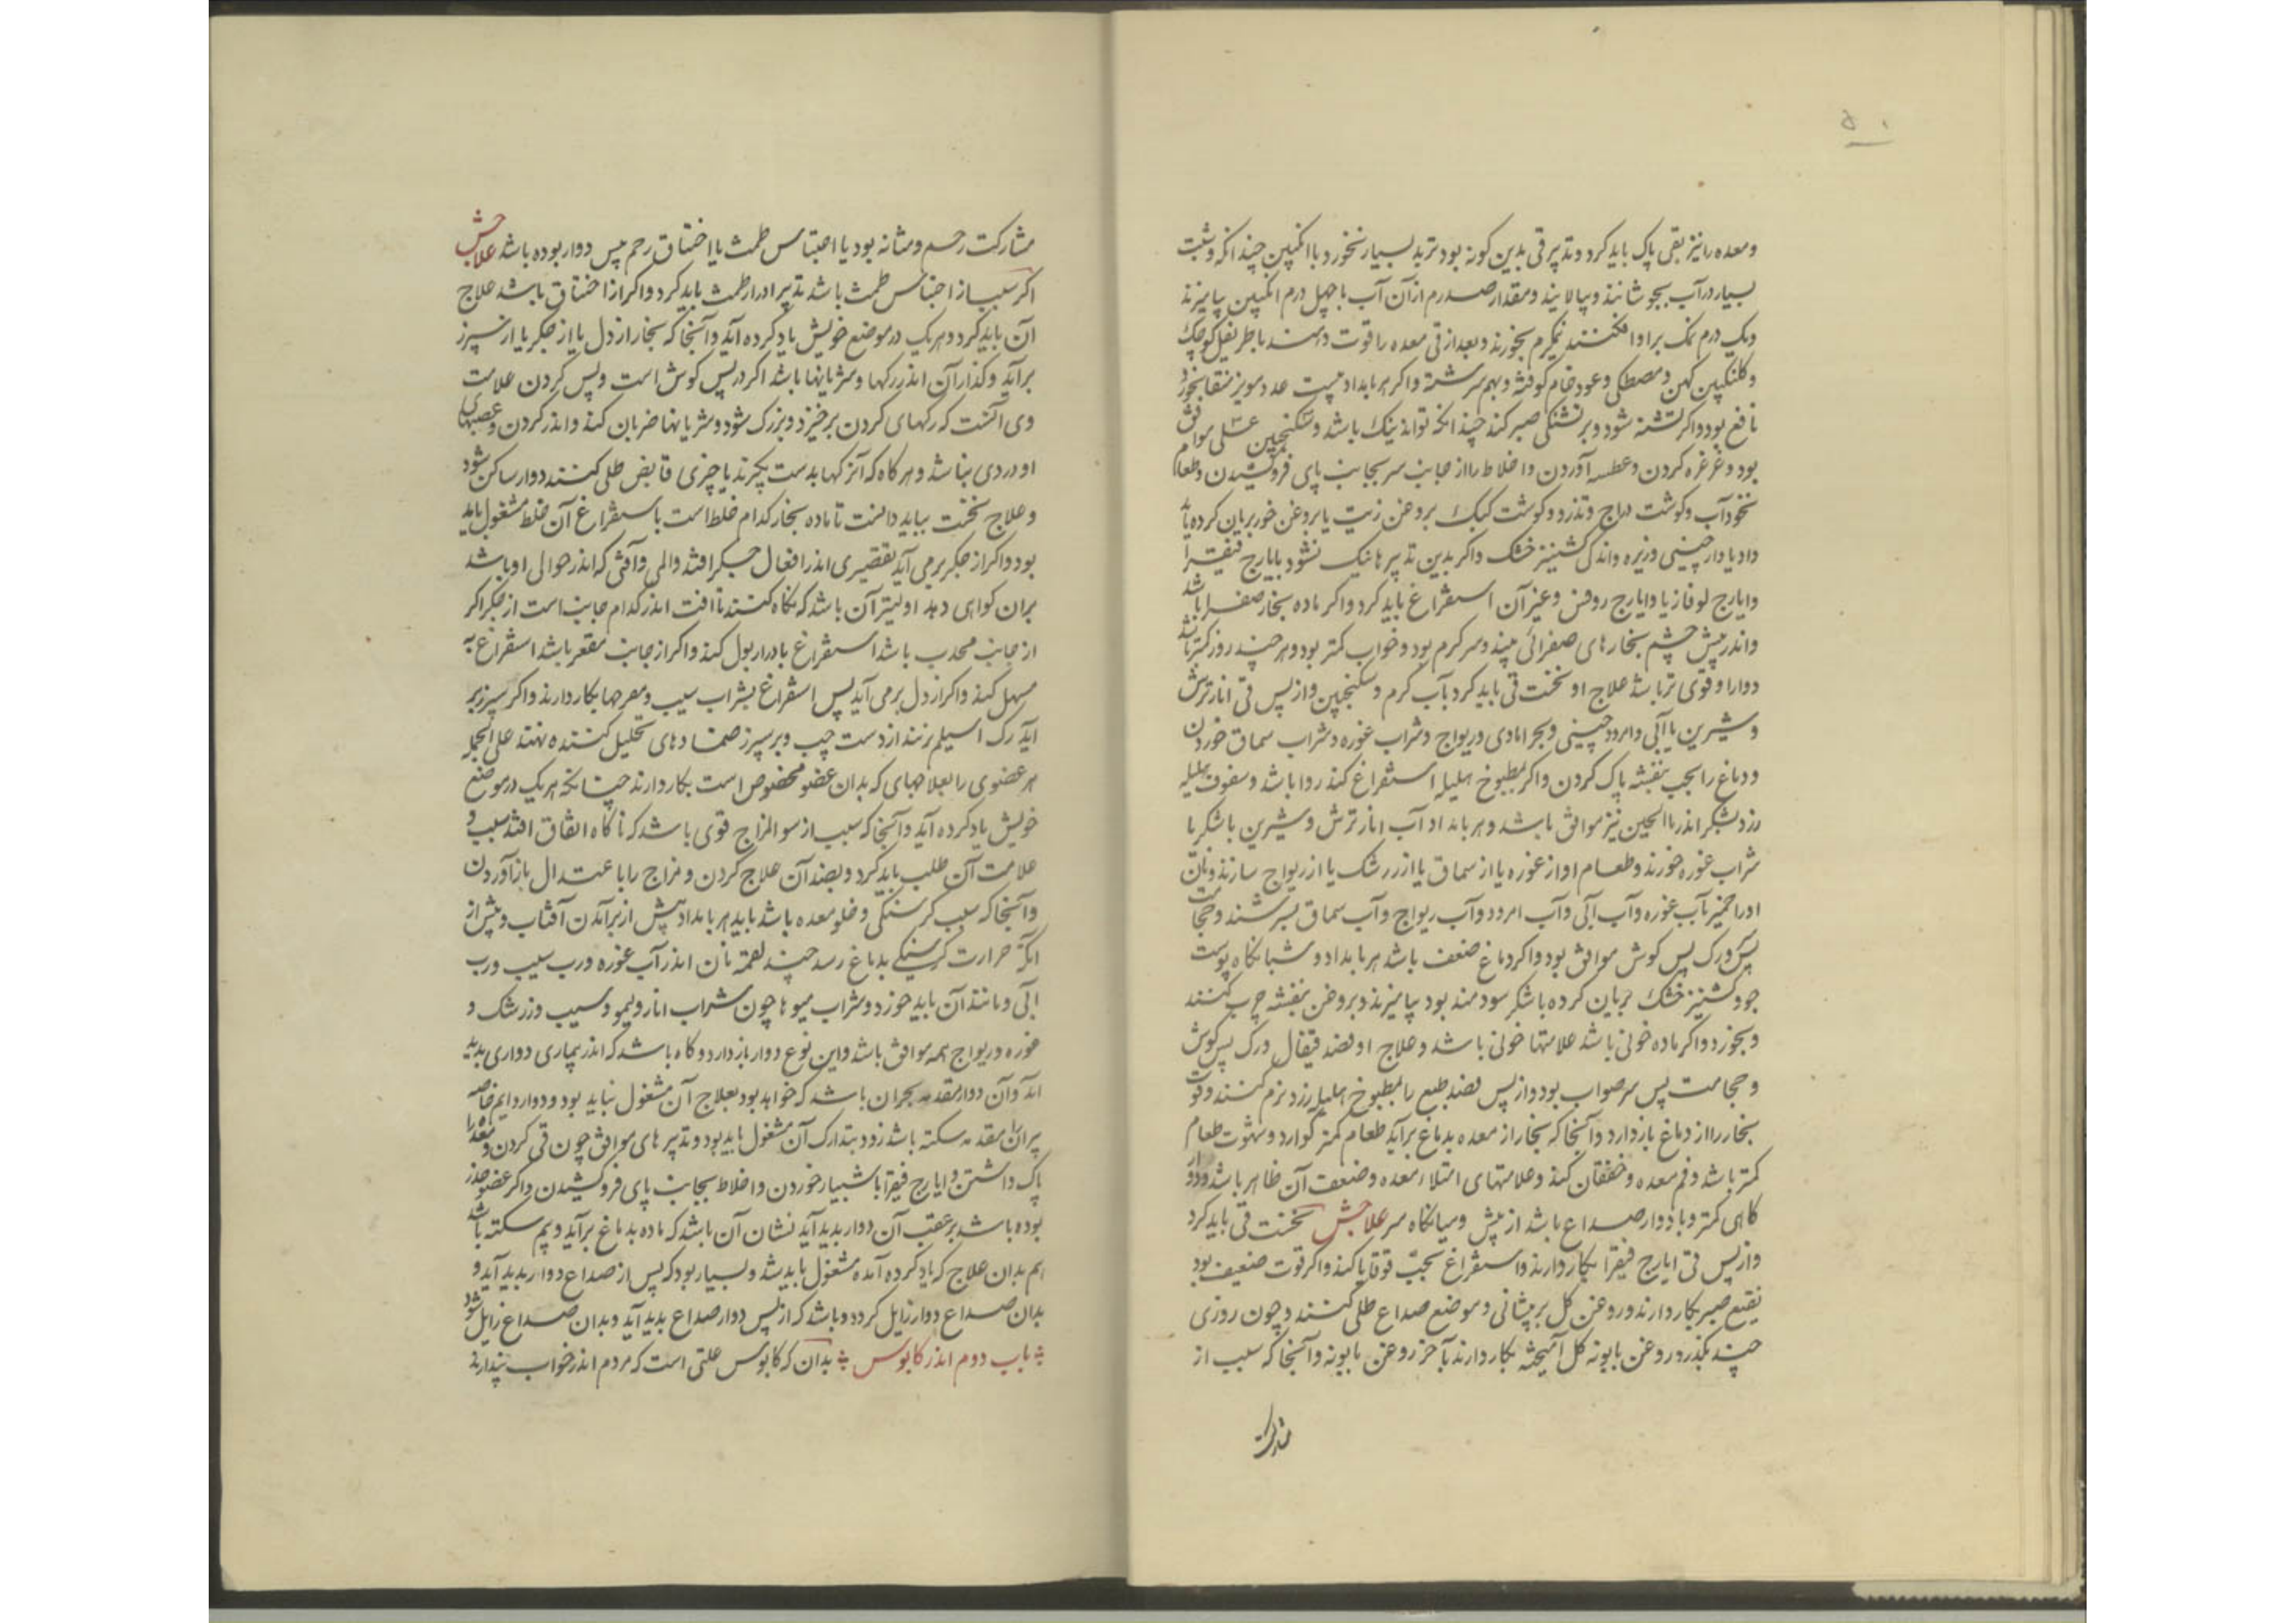 ۵۰
ومعده را نیز بقی پاک باید کرد وتدبیر قی بدین کونه بود ترب بسیار بخورد با انکبین چندانکه وشبت
بسیار در آب بجوشانند وبپالایند ومقدار صد درم از آن آب با چهل درم انکبین بیامیزند
ویک درم نمک براو افکنند نیم‌کرم بخورند وبعد از قی معده را قوت دهند باطریفل کوچک
وکلنکبین کهن ومصطکی وعود خام کوفته وبهم سرشته واکر هر بامداد بیست عدد مویز منقا بخورد
نافع بود واکر تشنه شود وبر تشنکی صبر کند چندانکه تواند نیک باشد وسکنجبین عسلی موافق
بود وغرغره کردن وعطسه آوردن واخلاط را از جانب سر بجانب پای فروکشیدن وطعام
نخودآب وکوشت دراج وتذرو وکوشت کبک بروغن زیت یا بروغن خور بریان کرده باید
داد با دارچینی وزیره واندکی کشنیز خشک واکر بدین تدبیرها نیک نشود بایارج فیقرا
وایارج لوغاذیا وایارج روفس وغیر آن استفراغ باید کرد واکر ماده بخار صفرا باشد
واندر پیش چشم بخارهای صفرائی بیند وسر کرم بود وخواب کمتر بود وهر چند روز کمتر باشد
دوار او قوی تر باشد علاج او نخست قی باید کرد بآب کرم وسکنجبین واز پس قی انار ترش
وشیرین یا آبی وامرود چینی وریواج وشراب غوره وشراب سماق خوردن
ودماغ را بحب بنفشه پاک کردن واکر بمطبوخ هلیله استفراغ کند روا باشد وسفوف هلیله
زرد بشکر اندر ماالجبن نیز موافق باشد وهر بامداد آب انار ترش وشیرین باشکر یا
شراب غوره خورند وطعام او از غوره یا از سماق یا از زرشک یا از ریواج سازند ونان
اورا خمیر بآب غوره وآب آبی وآب امرود وآب ریواج وآب سماق بسرشند وحجامت
پس ورک پس کوش موافق بود واکر دماغ ضعف باشد هر بامداد وشبانکاه پوست
جو وکشنیز خشک بریان کرده باشکر سودمند بود بیامیزند وبروغن بنفشه چرب کنند
وبخورد واکر ماده خونی باشد علامتها خونی باشد وعلاج او فصد قیفال ورک پس کوش
وحجامت پس سر صواب بود واز پس فصد طبع را بمطبوخ هلیله زرد نرم کنند وقوت
بخار را از دماغ باز دارد وآنجا که بخار از معده بدماغ برآید طعام کمتر کوارد وشهوت طعام
کمتر باشد وفم معده وخفقان کند وعلامتهای امتلا معده وضعف آن ظاهر باشد ودوار
کاهی کمتر وبا دوار صداع باشد از پیش ومیانکاه سر علاجش نخست قی باید کرد
واز پس قی ایارج فیقرا بکار دارند واستفراغ بحبّ قوقایا کند واکر قوت ضعیف بود
نقیع صبر بکار دارند وروغن کل بر پیشانی وموضع صداع طلی کنند وچون روزی
چند بکذرد روغن بابونه کل آمیخته بکار دارند بآخر روغن بابونه وآنجا که سبب از
مشارکت
مشارکت رحم ومثانه بود یا احتباس طمث یا اختناق رحم پس دوار بوده باشد علاجش
اکر سبب از احتباس طمث باشد تدبیر ادرار طمث باید کرد واکر از اختناق باشد علاج
آن باید کرد وهر یک در موضع خویش یاد کرده آید وآنجا که بخار از دل یا از جکر یا از سپرز
برآید وکذار آن اندر رکها وشریانها باشد اکر در پس کوش است وپس کردن علامت
وی آنست که رکهای کردن برخیزد وبزرک شود وشریانها ضربان کند واندر کردن وعصبهای
او دردی نباشد وهرکاه که آن رکها بدست بکیرند یا چیزی قابض طلی کنند دوار ساکن شود
وعلاج نخست بباید دانست تا ماده بخار کدام خلط است باستفراغ آن خلط مشغول باید
بود واکر از جکر برمی آید تقصیری اندر افعال جکر افتد والمی وآفتی که اندر حوالی او باشد
بران کواهی دهد اولیتر آن باشد که نکاه کنند تا آفت اندر کدام جانب است از جکر اکر
از جانب محدب باشد استفراغ بادرار بول کند واکر از جانب مقعر باشد استفراغ به
مسهل کند واکر از دل برمی آید پس استفراغ بشراب سیب ومفرحها بکار دارند واکر سپرز بر
آید رک اسیلم زنند از دست چپ وبر سپرز ضمادهای تحلیل کننده نهند علی الجمله
هر عضوی را بعلاجهای که بدان عضو مخصوص است بکار دارند چنانکه هر یک در موضع
خویش یاد کرده آید وآنجا که سبب از سوالمزاج قوی باشد که ناکاه اتفاق افتد سبب و
علامت آن طلب باید کرد وبضد آن علاج کردن ومزاج را با عتدال باز آوردن
وآنجا که سبب کرسنکی وخلو معده باشد باید هر بامداد پیش از برآمدن آفتاب وپیش از
آنکه حرارت کرسنکی بدماغ رسد چند لقمه نان اندر آب غوره ورب سیب ورب
آبی ومانند آن باید خورد وشراب میوها چون شراب انار ولیمو وسیب وزرشک و
غوره وریواج همه موافق باشد واین نوع دوار باز دارد وکاه باشد که اندر بیماری دواری پدید
آید وآن دوار مقدمه بحران باشد که خواهد بود بعلاج آن مشغول نباید بود ودوار دایم خاصه
پیران را مقدمه سکته باشد زود بتدارک آن مشغول باید بود وتدبیرهای موافق چون قی کردن ومعده را
پاک داشتن وایارج فیقرا باشبیار خوردن واخلاط بجانب پای فروکشیدن واکر عضو خدر
بوده باشد برعقب آن دوار پدید آید نشان آن باشد که ماده بدماغ برآید وبیم سکته باشد
هم بدان علاج که یاد کرده آمده مشغول باید شد وبسیار بود که پس از صداع دوار پدید آید و
بدان صداع دوار زایل کردد وباشد که از پس دوار صداع پدید آید وبدان صداع زایل شود
باب دوم اندر کابوس بدان که کابوس علتی است که مردم اندر خواب پندارند